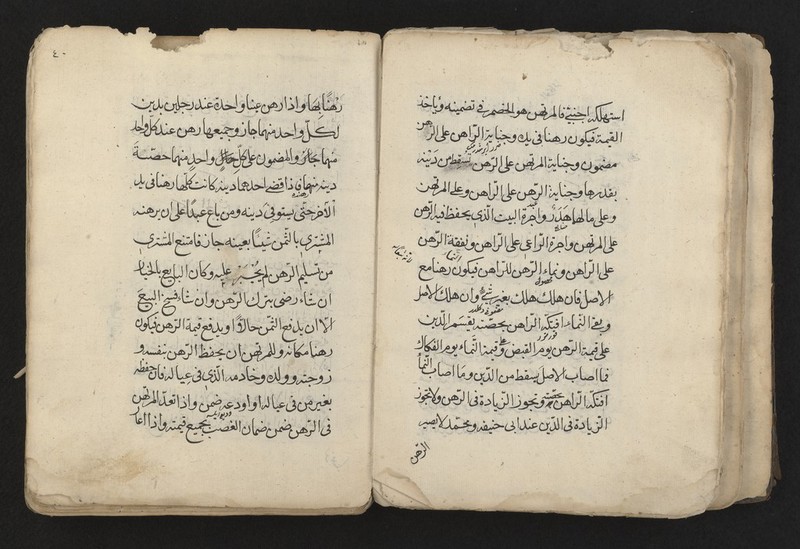 استهلكه اجنبي فالمرتهن هو الخصم في تضمينه وياخذ
القيمة فيكون رهنا في يده وجناية الراهن على الرهن
مضمون وجناية المرتهن على الرهن تسقط من دينه
بقدرها وجناية الرهن على الراهن وعلى المرتهن
وعلى مالهما هدر واجرة البيت الذي يحفظ فيه الرهن
على المرتهن واجرة الراعي على الراهن ونفقة الرهن
على الراهن ونماء الرهن للراهن فيكون رهنا مع
الاصل فان هلك هلك بغير شيء وان هلك الاصل
وبقي النماء افتكه الراهن بحصته يقسم الدين
على قيمة الرهن يوم القبض وقيمة النماء يوم الفكاك
فما اصاب الاصل يسقط من الدين وما اصاب النماء
افتكه الراهن به ويجوز الزيادة في الرهن ولا يجوز
الزيادة في الدين عند ابي حنيفه ومحمد لا يصير
الرهن
٤٠
رهنا بها واذا رهن عينا واحدة عند رجلين بدين
لكل واحد منهما جاز وجميعها رهن عند كل واحد
منهما والمضمون على كل واحد منهما حصة
دينه منهما فاذا قضى احدهما دينه كانت كلها رهنا في يد
الآخر حتى يستوفي دينه ومن باع عبدا على ان يرهنه
المشتري بالثمن شيئا بعينه جاز فامتنع المشتري
من تسليم الرهن لم يجبر عليه وكان البايع بالخيار
ان شاء رضي بترك الرهن وان شاء فسخ البيع
الا ان يدفع الثمن حالا او يدفع قيمة الرهن فيكون
رهنا مكانه وللمرتهن ان يحفظ الرهن بنفسه و
زوجته وولده وخادمه الذي في عياله فان حفظه
بغير من في عياله او اودعه ضمن واذا تعدى المرتهن
في الرهن ضمن ضمان الغصب بجميع قيمته واذا اعار